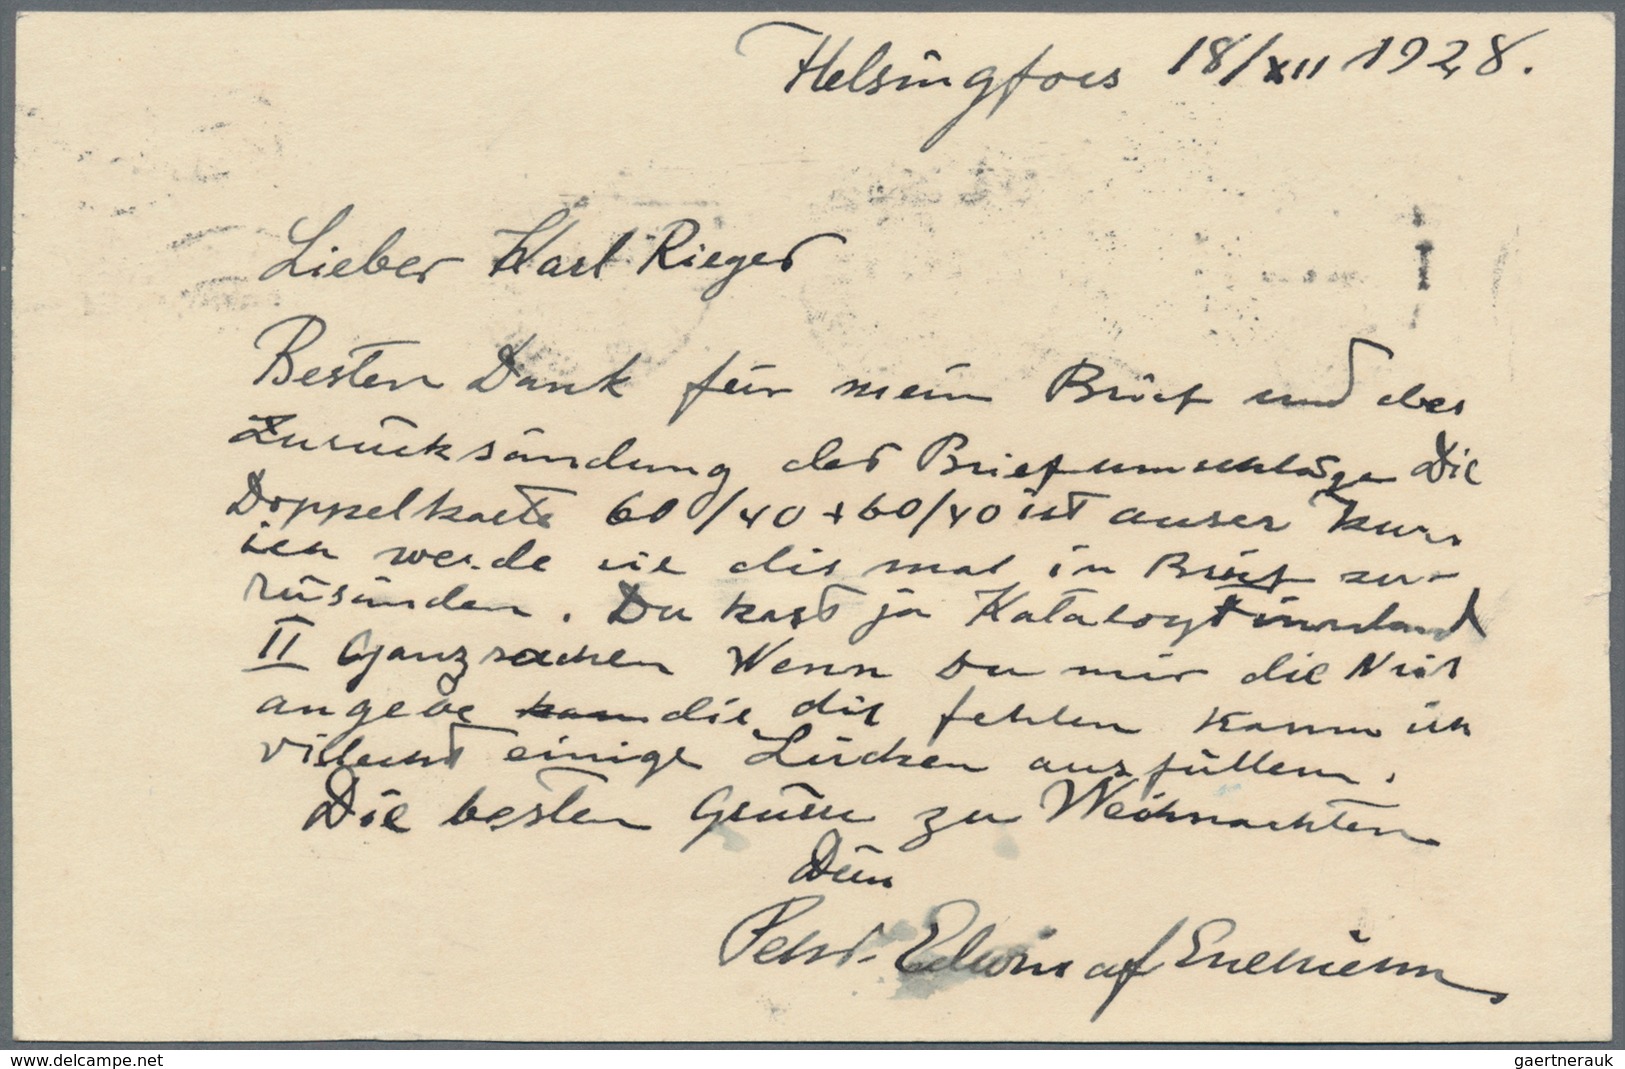 Helsingfors 18/XII 1928.
Lieber Karl Rieger
Besten Dank für mein Brief und der
Zurücksändung der Briefumschläge Die
Doppelkarte 60/40 + 60/40 ist auser Kurs
ich werde sie dis mal in Brief zu-
rüsänden. Du hast ja Katalog
II Ganzsachen Wenn Du mir die
angebe die dir fehlen kann ich
vilecht einige Lücken ausfüllen.
Die besten Grüsse zu Weihnachten
Dein
Edwin af
www.delcampe.net
gaertnerauk